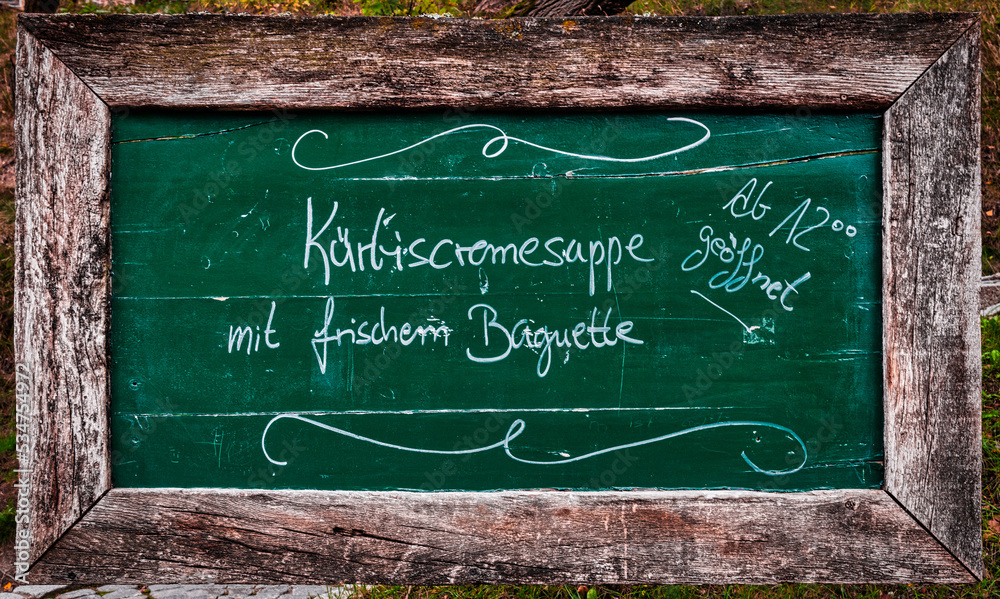 Kürbiscremesuppe
mit frischem Baguette
Ab 12⁰⁰
geöffnet
Adobe Stock | #534754972